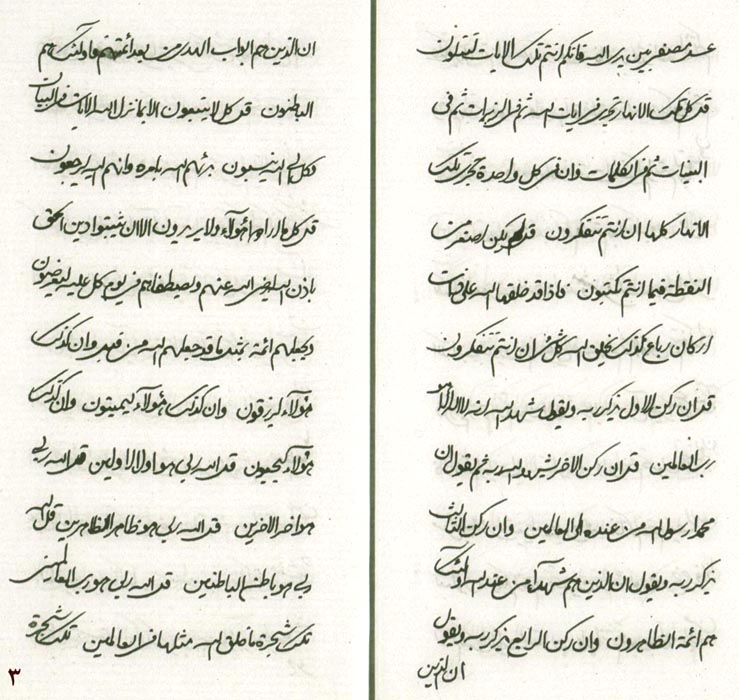 عند مصنعرين يرى الله فانكم انتم تلك الايات لتتلون
قد كل تلك الانهار تجرى فى ايات الله ثم فى الزيرات ثم فى
البينات ثم فى الكلمات وان فى كل واحدة تجرى تلك
الانهار كلها ان انتم تتفكرون قد يكن اصغر من
النقطة فيما انتم تكتبون فاذا قد خلقها الله على
اركان رباع كذلك يخلق الله كل شئ ان انتم تتفكرون
قد ان ركن الاول يذكر ربه ويقول شهد الله انه لا اله الا
رب العالمين قد ان ركن الاخر يشهد لله ربه ثم يقول ان
محمد رسول الله من عنده الى العالمين وان ركن الثالث
يذكر ربه ويقول ان الذين هم شهداء من عند الله اولئك
هم ائمة الظاهرون وان ركن الرابع يذكر ربه ويقول
ان الذين
ان الذين هم ابواب الهدى من بعد ائمتهم فاولئك هم
الباطنون قد كل لا يتبعون الا بما نزل الله الايات فى البيان
فكل الى الله ينسبون برئهم الله بامره وانهم اليه ليرجعون
قد كل ما اراد هؤلاء ولا يريدون الا ان يثبتوا دين الحق
باذن الله ليرضى الله عنهم وليصطفاهم فى يوم كل عليه ليعرضون
ويجعلهم ائمة بمثل ما قد جعلهم الله من قبل وان كذلك
هؤلاء ليرزقون وان كذلك هؤلاء ليميتون وان كذلك
هؤلاء ليحييون قد الله ربى هو اول الاولين قد الله ربى
هو اخر الاخرين قد الله ربى هو ظاهر الظاهرين قل الله
ربى هو باطن الباطنين قد الله ربى هو رب العالمين
تلك شجرة ما خلق الله مثلها فى العالمين تلك شجرة
٣